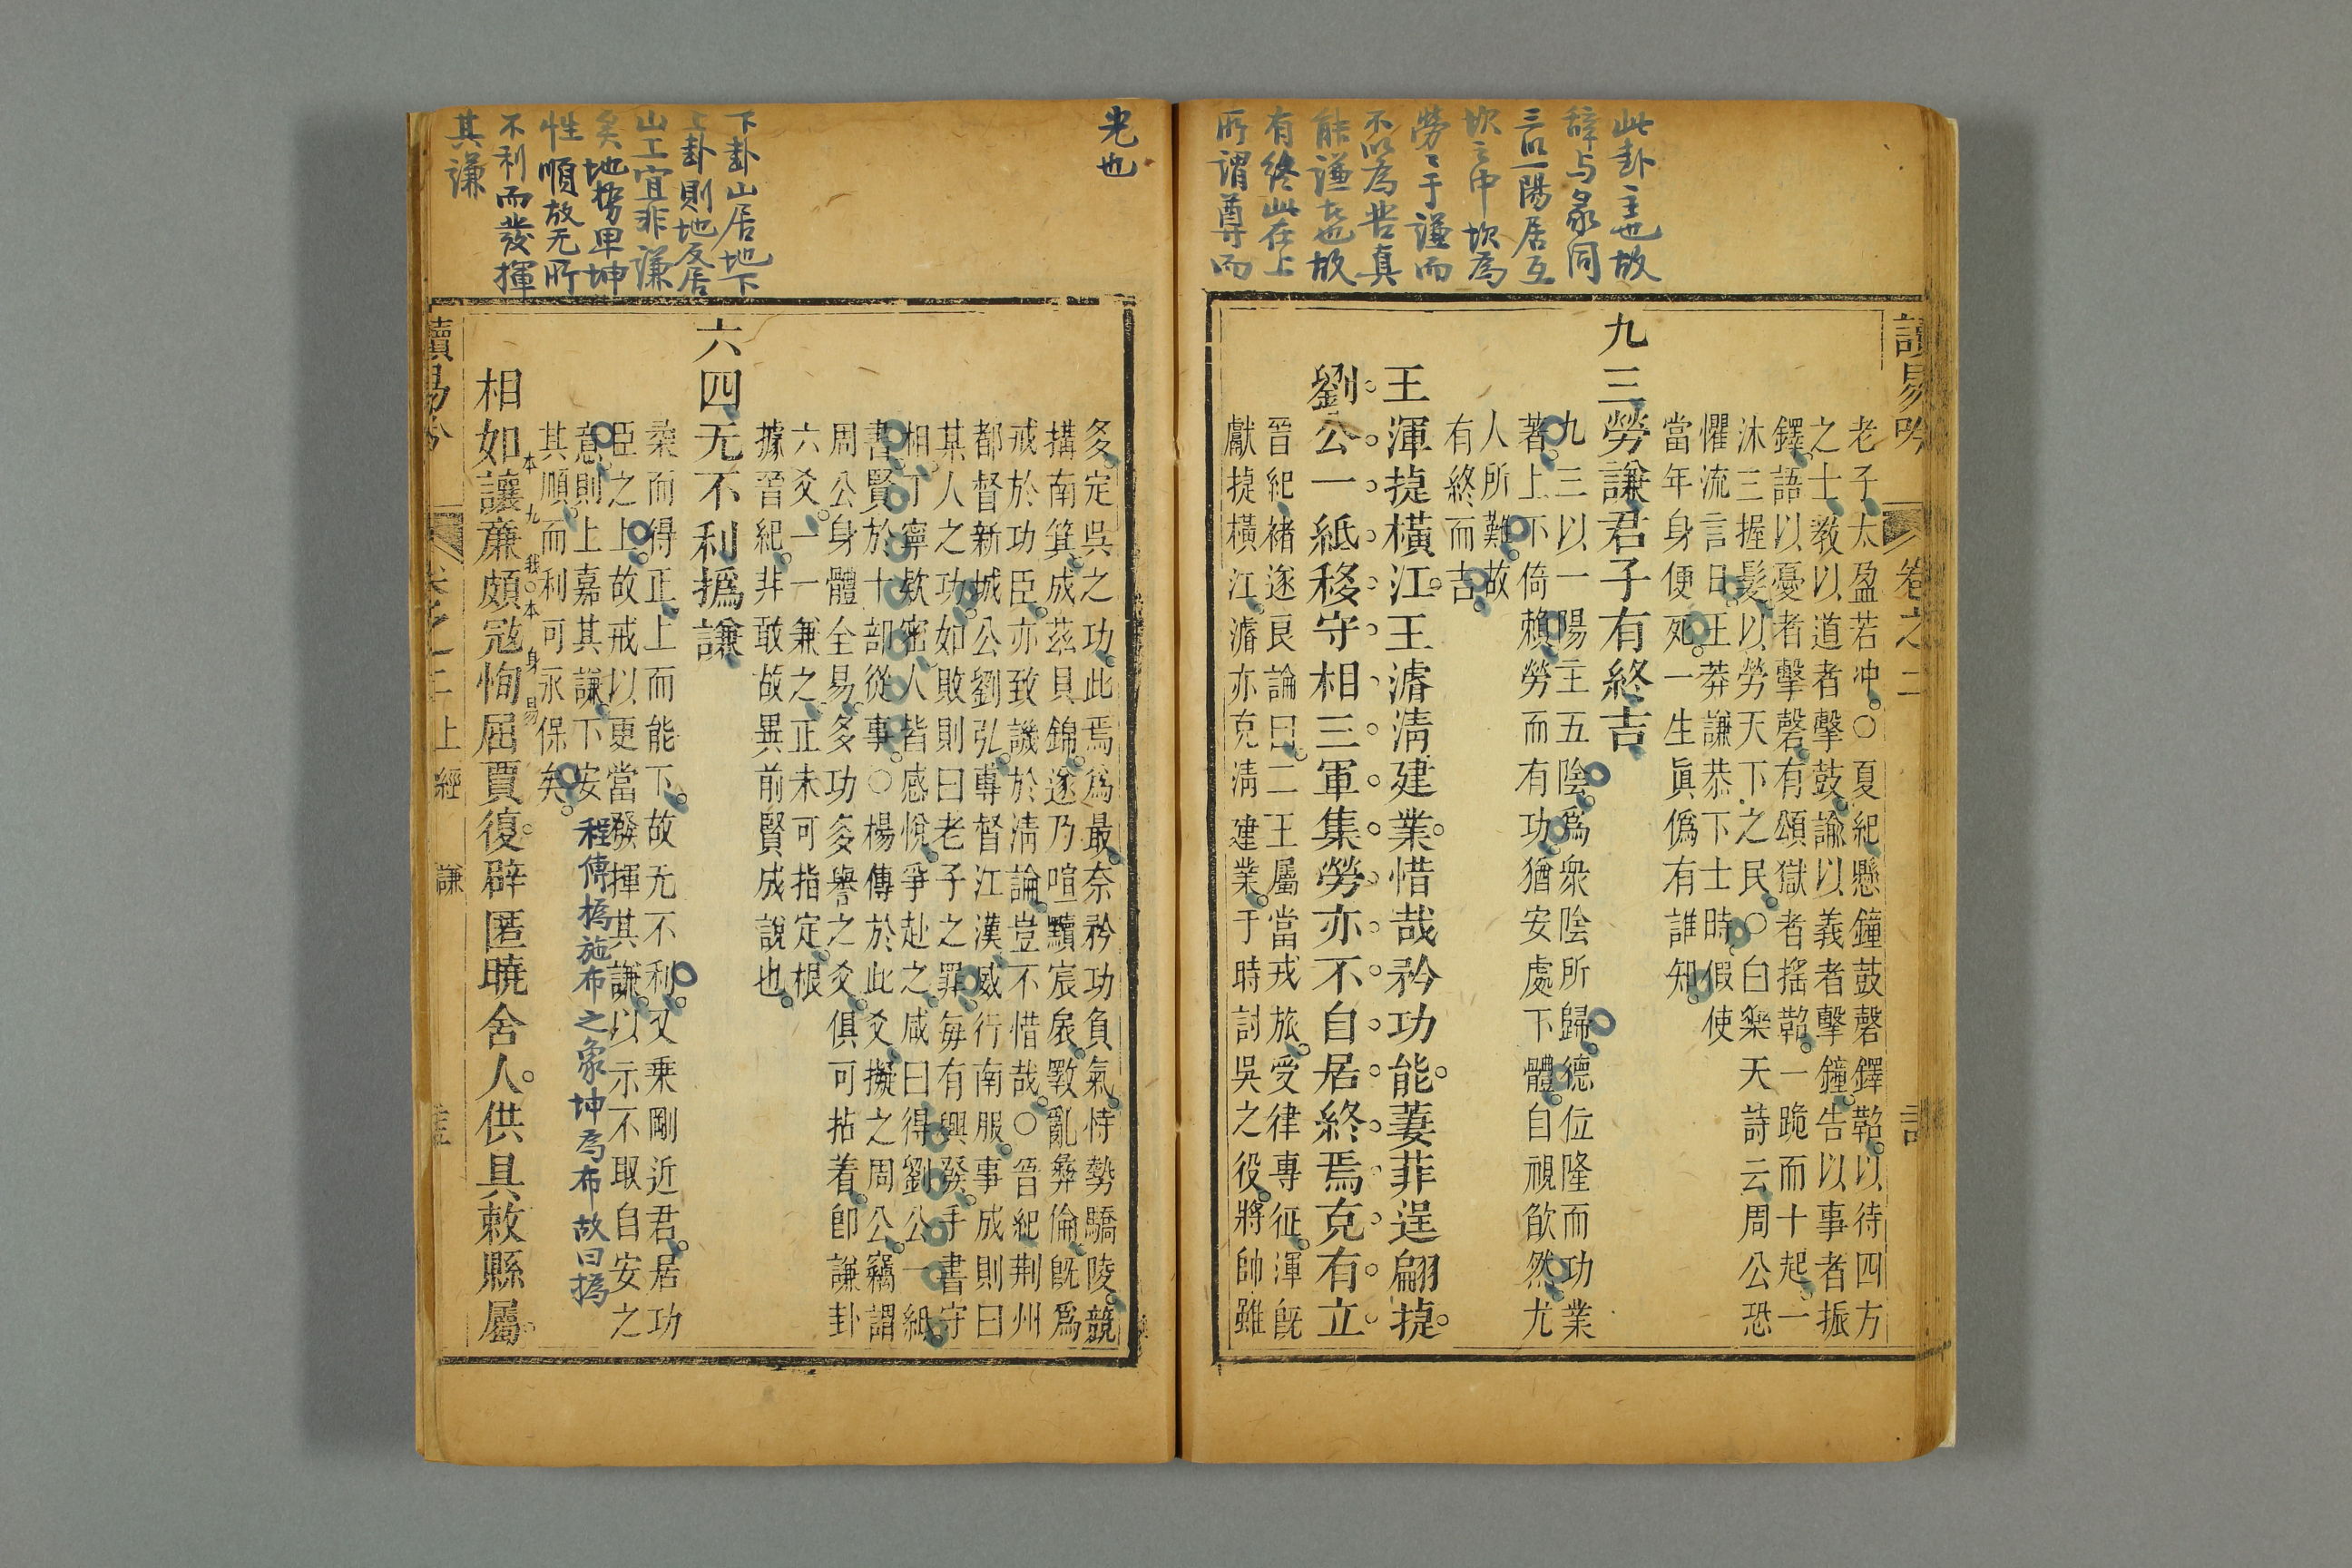 此卦主也故
辭与彖同
三以一陽居互
坎之中坎爲
勞勞于謹而
不以爲苦真
能謹者也故
有終此在上
所謂尊而
讀易吟
卷之二
老子太盈若冲○夏紀懸鐘鼓磬鐸鞀以待四方
之士教以道者擊鼓諭以義者擊鐘告以事者振
鐸語以憂者擊磬有頌獄者搖鞀一跪而十起一
沐三握髮以勞天下之民○白樂天詩云周公恐
懼流言日王莽謙恭下士時假使
當年身便死一生眞僞有誰知
九三勞謙君子有終吉
九三以一陽主五陰爲衆陰所歸德位隆而功業
著上不倚賴勞而有功猶安處下體自視欿然尤
人所難故
有終而吉
王渾㨗橫江王濬淸建業惜哉矜功能萋菲逞翩㨗
劉公一紙移守相三軍集勞亦不自居終焉克有立
晉紀禇遂良論曰二王屬當戎旅受律專征渾旣
獻㨗橫江濬亦克淸建業于時討吳之役將帥雖
光也
下卦山居地下
上卦則地反居
山上宜非謙
矣地勢卑坤
性順故无所
不利而發揮
其謙
多定吳之功此焉爲最奈矜功負氣恃勢驕陵競
搆南箕成茲貝錦遂乃喧黷宸扆斁亂彜倫旣爲
戒於功臣亦致譏於淸論豈不惜哉○晉紀荆州
都督新城公劉弘專督江漢威行南服事成則曰
某人之功如敗則曰老子之罪每有興發手書守
相丁寧欵密人皆感悅爭赴之咸曰得劉公一紙
書賢於十部從事○楊傳於此爻擬之周公竊謂
周公身體全易多功多譽之爻俱可拈着卽謙卦
六爻一一兼之正未可指定根
據晉紀非敢故異前賢成說也
六四无不利撝謙
柔而得正上而能下故无不利又乗剛近君居功
臣之上故戒以更當發揮其謙以示不取自安之
意則上嘉其謙下安
其順而利可永保矣
程傳撝施布之象坤爲布故曰撝
相如讓廉頗寇恂屈賈復辟匿曉舍人供具敕縣屬
讀易吟
卷之二
上經
謙